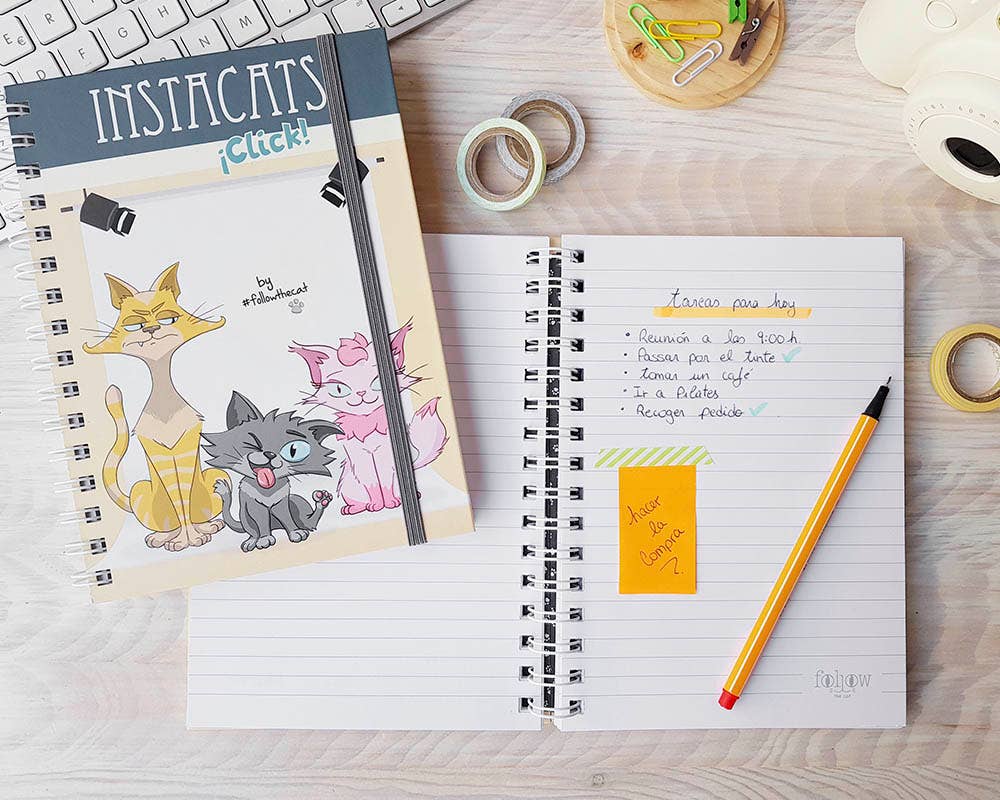 INSTACATS
¡Click!
by
#followthecat
tareas para hoy
• Reunión a las 9:00 h.
• Passar por el tinte ✓
• tomar un café
• Ir a Pilates
• Recoger pedido ✓
hacer
la
compra
follow
THE CAT